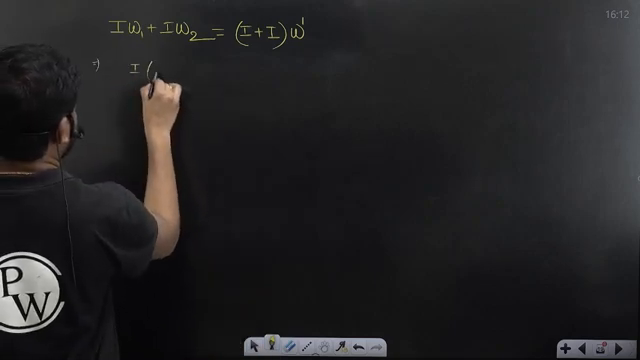 16:12
Iω₁ + Iω₂ = (I + I) ω'
⇒ I (
PW